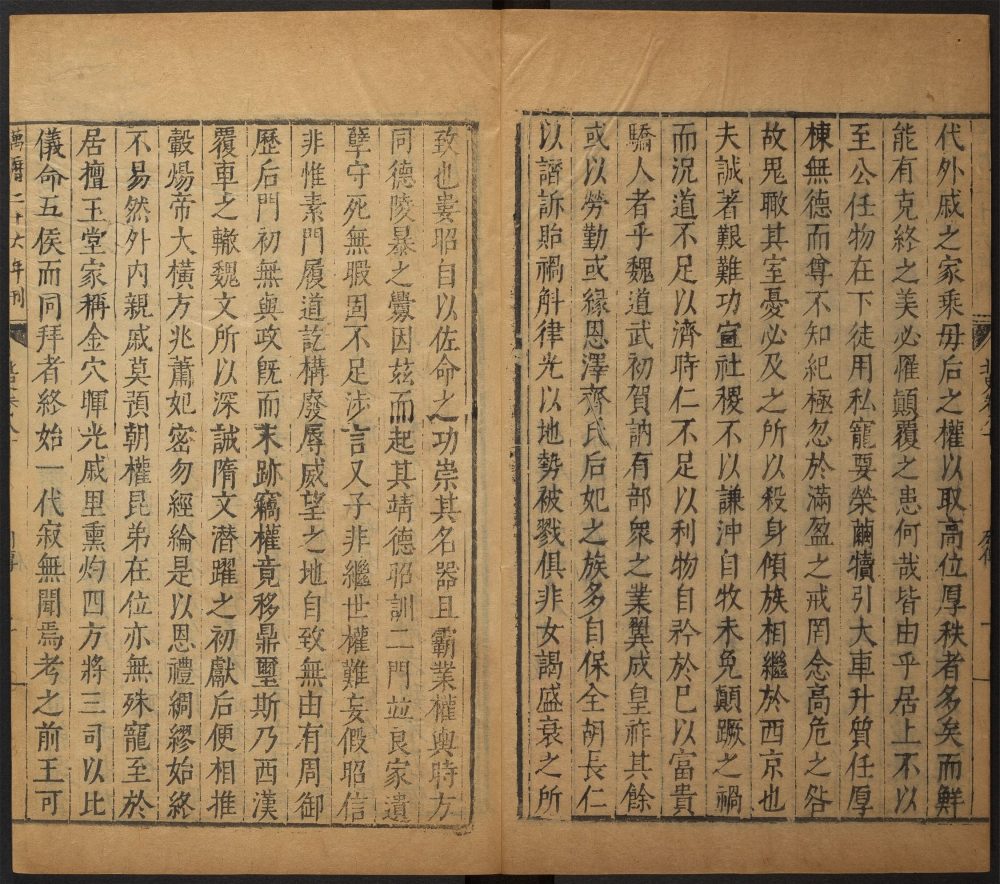 代外戚之家乘毋后之權以取高位厚秩者多矣而鮮
能有克終之美必罹顛覆之患何哉皆由乎居上不以
至公任物在下徒用私寵要榮繭犢引大車升質任厚
棟無德而尊不知紀極忽於滿盈之戒罔念高危之咎
故鬼瞰其室憂必及之所以殺身傾族相繼於西京也
夫誠著艱難功宣社稷不以謙沖自牧未免顛蹶之禍
而況道不足以濟時仁不足以利物自矜於巳以富貴
驕人者乎魏道武初賀訥有部衆之業翼成皇祚其餘
或以勞勤或緣恩澤齊氏后妃之族多自保全胡長仁
以譖訴貽禍斛律光以地勢被戮俱非女謁盛衰之所
致也婁昭自以佐命之功崇其名器且霸業權輿時方
同德陵暴之釁因茲而起其靖德昭訓二門並良家遺
孽守死無暇固不足涉言又子非繼世權難妄假昭信
非惟素門履道訖構廢辱威望之地自致無由有周御
歷后門初無與政旣而末跡竊權竟移鼎璽斯乃西漢
覆車之轍魏文所以深誡隋文潛躍之初獻后便相推
轂煬帝大橫方兆蕭妃密勿經綸是以恩禮綢繆始終
不易然外内親戚莫預朝權昆弟在位亦無殊寵至於
居擅玉堂家稱金穴暉光戚里熏灼四方將三司以比
儀命五侯而同拜者終始一代寂無聞焉考之前王可
萬曆二十六年刊